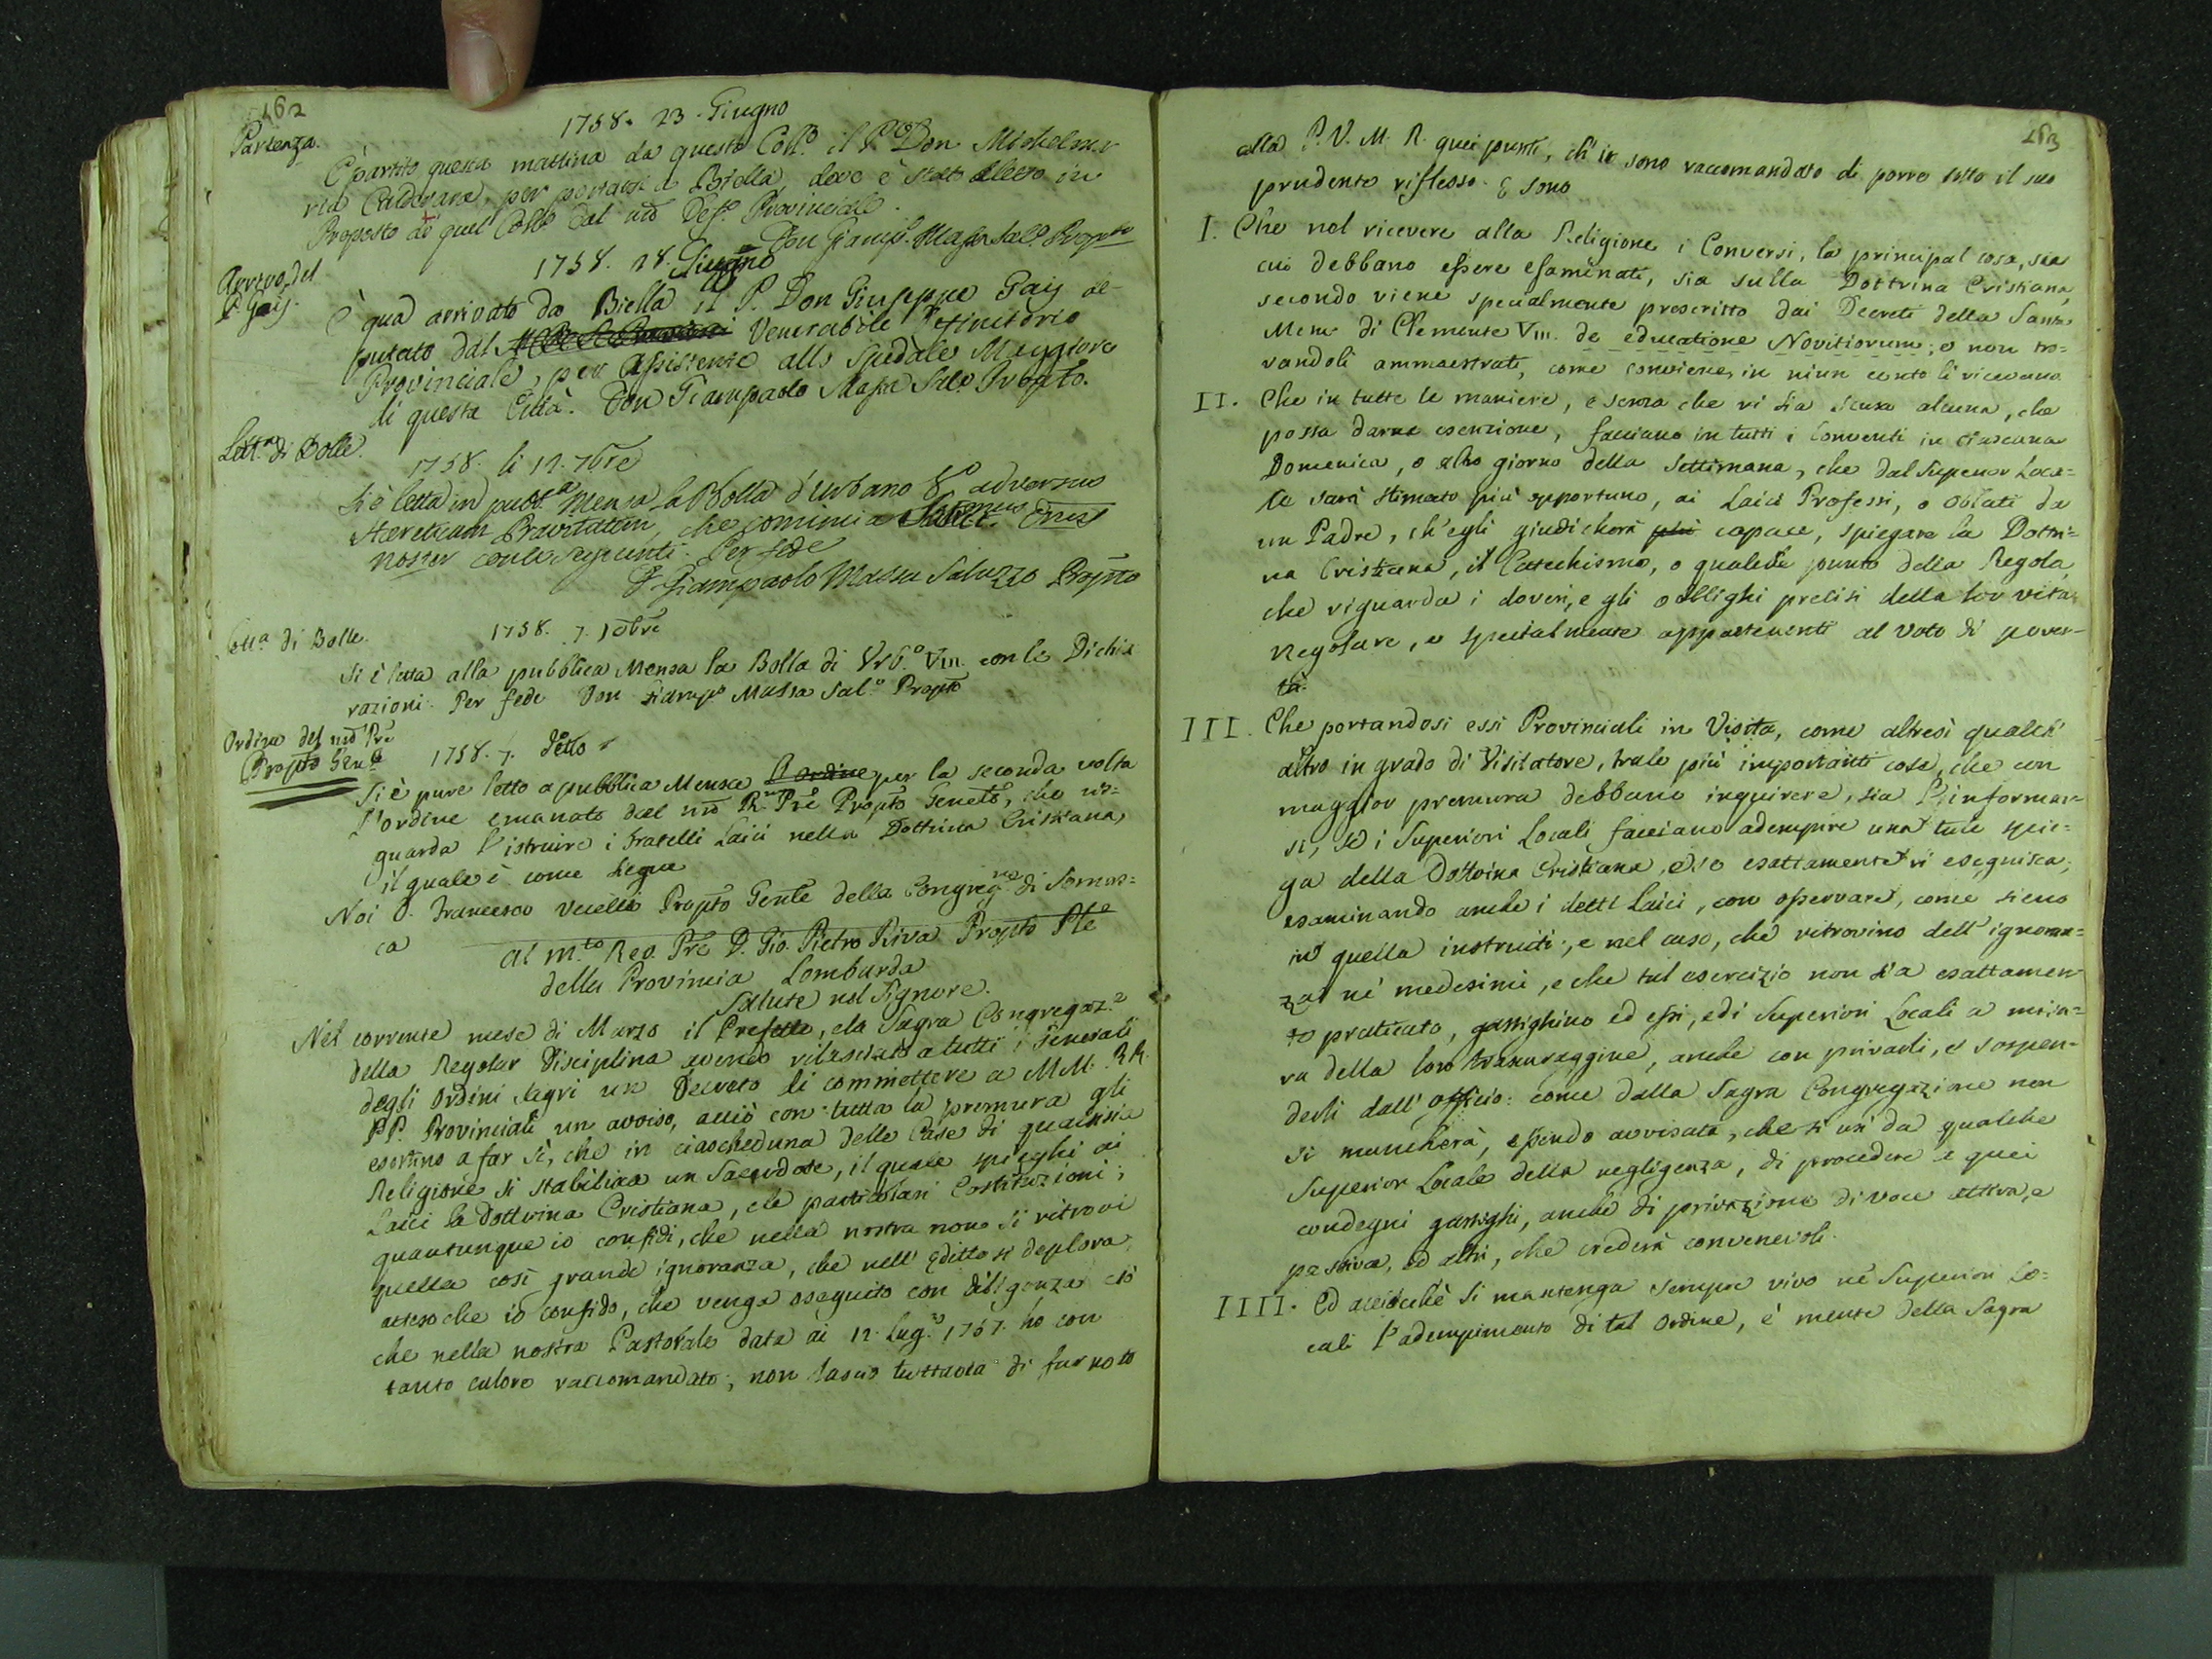 162
Partenza.
1758. 23. Giugno
È partito questa mattina da questo Coll.o il P. Don Michelan-
Calderara, per portarsi a Biella, dove è stato eletto in
Proposto di quel Coll.o dal Def.o Provinciale.
Don Giamp.o Massa Sal.o Prop.to
Arrivo del
P. Gaij.
1758. 28. Giugno
È qua arrivato da Biella il P. Don Giuseppe Gaij de-
putato dal Venerabile Definitorio
Provinciale, per Assistente allo Spedale Maggiore
di questa Città. Don Giampaolo Massa Sal.o Prop.to.
Lett.a di Bolle.
1758. li 12. 7bre
Si è letta in pub.ca Mensa la Bolla d'Urbano 8.o adversus
Haereticam Pravitatem, che comincia
noster con le seguenti. Per fede
D. Giampaolo Massa Saluzzo Prop.to
Lett.a di Bolle.
1758. 7. Xbre
Si è letta alla pubblica Mensa la Bolla di Urb.o VIII. con le Dichia
razioni. Per fede Don Giamp.o Massa Sal.o Prop.to
Ordine del nro Pre
Prop.to Gen.le
1758. 7. detto
Si è pure letto a pubblica Mensa per la seconda volta
l'ordine emanato dal nro R.mo Pre Prop.to Gen.le, che ri=
guarda l'istruire i Fratelli Laici nella Dottrina Cristiana,
il quale è come segue
Noi D. Francesco Vecelli Prop.to Gen.le della Congreg.ne di Somas=
ca
Al M.to Rev. Pre D. Gio. Pietro Riva Prop.to Ple
della Provincia Lombarda
Salute nel Signore.
Nel corrente mese di Marzo il Prefetto, e la Sagra Congregaz.e
della Regolar Disciplina avendo rilasciato a tutti i Generali
degli Ordini Sagri un Decreto di commettere a MM. RR.
PP. Provinciali un avviso, acciò con tutta la premura gli
esortino a far sì, che in ciascheduna delle Case di qualsisia
Religione si stabilisca un Sacerdote, il quale spieghi ai
Laici la Dottrina Cristiana, e le particolari Costituzioni;
quantunque io confidi, che nella nostra non si ritrovi
quella così grande ignoranza, che nell'Editto si deplora
atteso che io confido, che venga eseguito con diligenza ciò
che nella nostra Pastorale data ai 12. Lug.o 1757. ho con
tanto calore raccomandato; non lascio tuttavia di far noto
163
alla P. V. M. R. quei punti, ch'ie sono raccomandato di porre sotto il suo
prudente riflesso. E sono
I. Che nel ricevere alla Religione i Conversi, la principal cosa, su
cui debbano essere esaminati, sia sulla Dottrina Cristiana,
secondo viene specialmente prescritto dai Decreti della Santa
Mem. di Clemente VIII. de educatione Novitiorum; e non tro=
vandoli ammaestrati, come conviene, in niun conto li ricevano
II. Che in tutte le maniere, e senza che vi sia scusa alcuna, che
possa darne esenzione, facciano in tutti i Conventi in ciascuna
Domenica, o altro giorno della Settimana, che dal Superior Loca=
le sarà stimato più opportuno, ai Laici Professi, o Oblati da
un Padre, ch'egli giudicherà più capace, spiegare la Dottri=
na Cristiana, il Catechismo, o qualche punto della Regola,
che riguarda i doveri, e gli obblighi precisi della lor vita
regolare, e specialmente appartenenti al voto di pover-
tà.
III. Che portandosi essi Provinciali in Visita, come altresì qualch'
altro in grado di Visitatore, tra le più importanti cose, che con
maggior premura debbano inquirere, sia l'informar=
si, se i Superiori Locali facciano adempire una tale spie=
ga della Dottrina Cristiana, e se esattamente si eseguisca,
esaminando anche i detti Laici, con osservare, come sieno
in quella instruiti; e nel caso, che ritrovino dell'ignoran=
za ne' medesimi, e che tal esercizio non sia esattamen=
te praticato, gastighino ed essi, ed i Superiori Locali a misu=
ra della loro trascuraggine, anche con privarli, e sospen=
derli dall'officio: come dalla Sagra Congregazione non
si mancherà, essendo avvisata, che si usi da qualche
Superior Locale della negligenza, di procedere a quei
condegni gastighi, anche di privazione di voce attiva, e
passiva, ed altri, che crederà convenevoli.
IIII. Ed acciocchè si mantenga sempre vivo ne' Superiori Lo=
cali l'adempimento di tal Ordine, è mente della Sagra